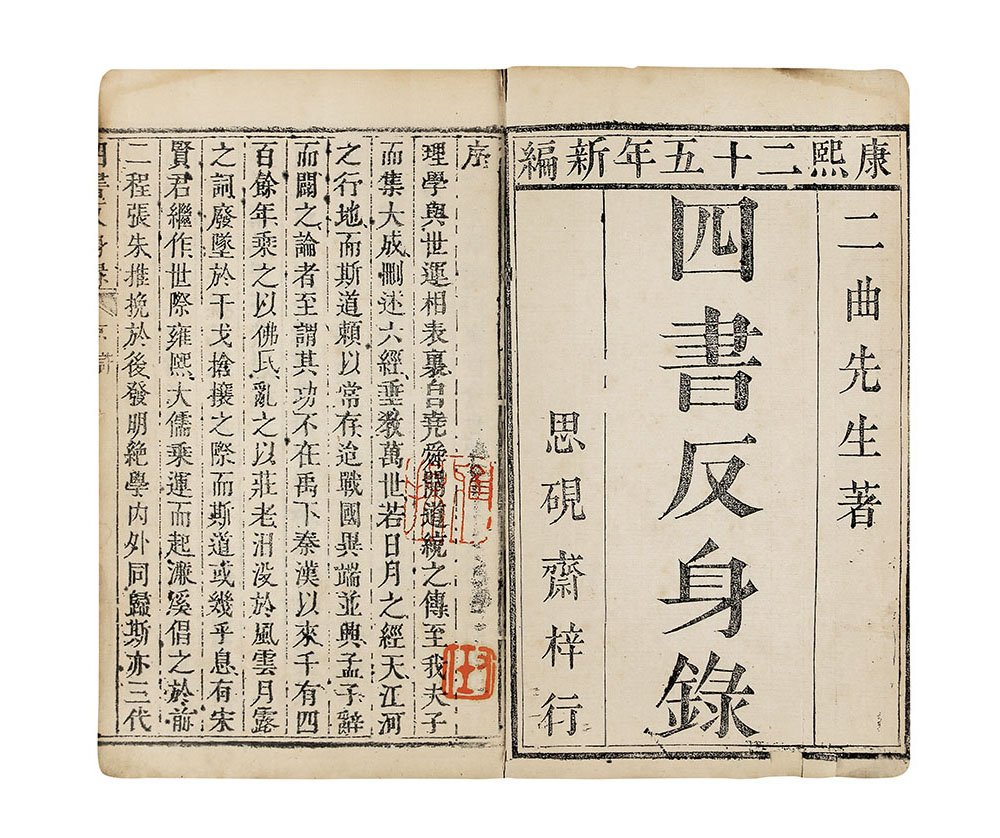 康熙二十五年新編
二曲先生著
四書反身錄
思硯齋梓行
序
理學與世運相表裏自堯舜開道統之傳至我夫子
而集大成刪述六經垂教萬世若日月之經天江河
之行地而斯道賴以常存迨戰國異端並興孟子辭
而闢之論者至謂其功不在禹下秦漢以來千有四
百餘年乘之以佛氏亂之以莊老汨没於風雲月露
之詞廢墜於干戈搶攘之際而斯道或幾乎息有宋
賢君繼作世際雍熙大儒乘運而起濂溪倡之於前
二程張朱推挽於後發明絶學内外同歸斯亦三代